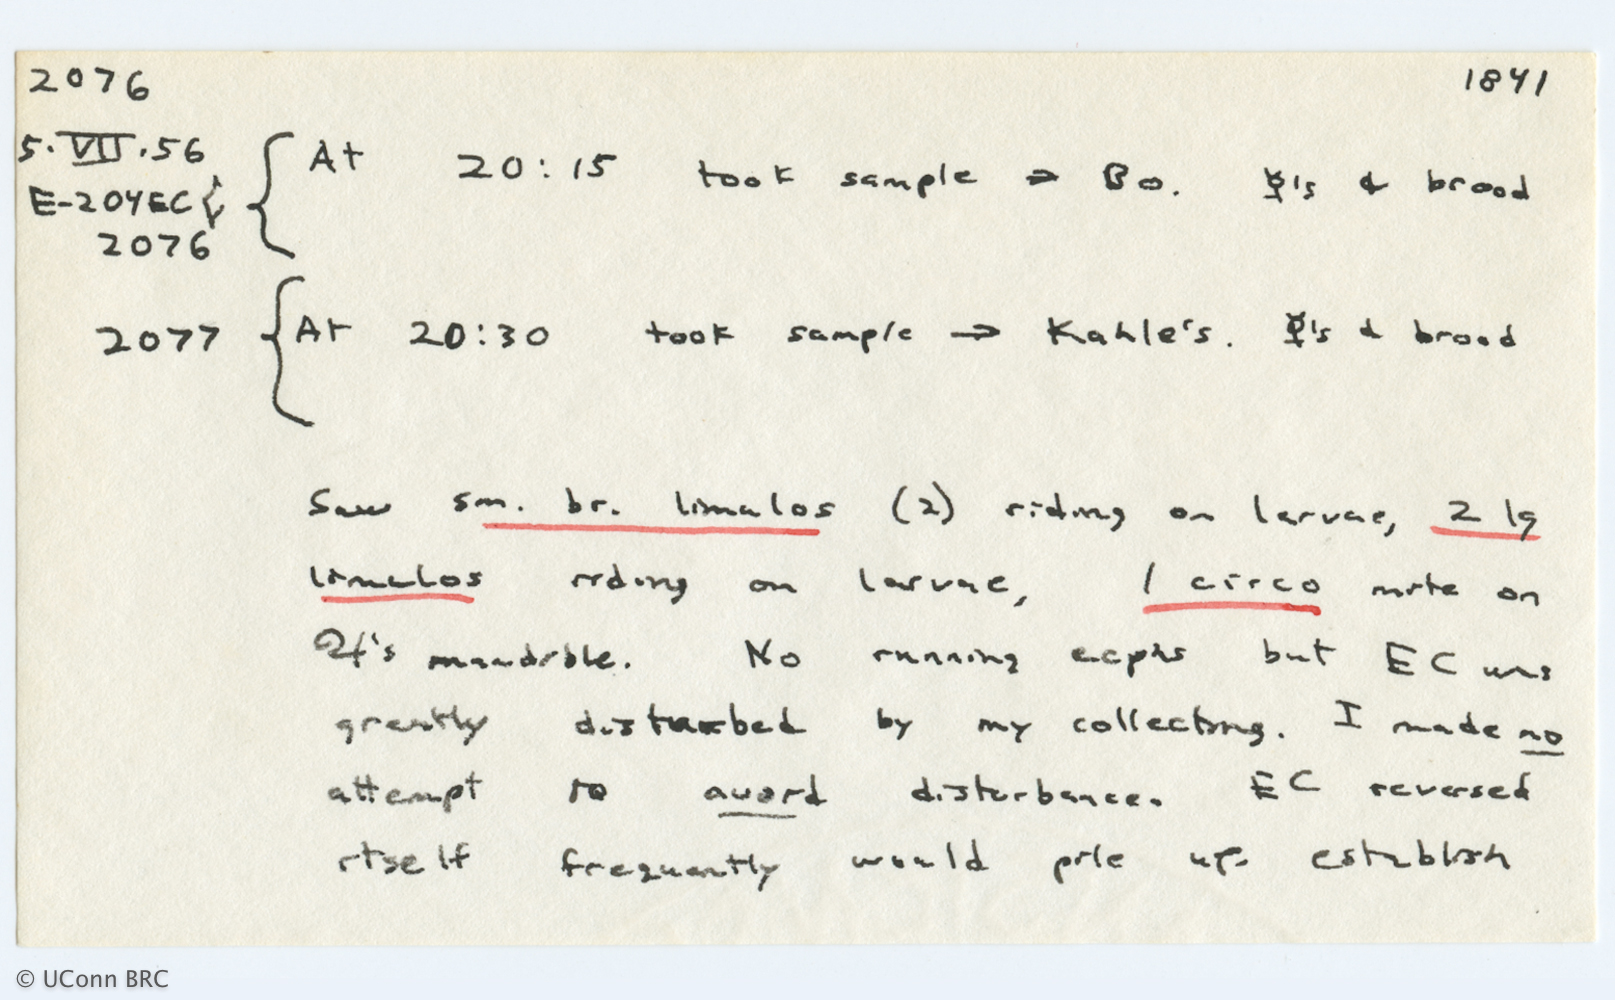 2076 1841
5.VII.56 { At 20:15 took sample → Bo. ☿'s & brood
E-204EC {
2076
2077 { At 20:30 took sample → Kahle's. ☿'s & brood
Saw sm. br. limulos (2) riding on larvae, 2 lg
limulos riding on larvae, 1 circo mite on
♃'s mandible. No running ecphs but EC was
greatly disturbed by my collecting. I made no
attempt to avoid disturbance. EC reversed
itself frequently would pile up establish
© UConn BRC